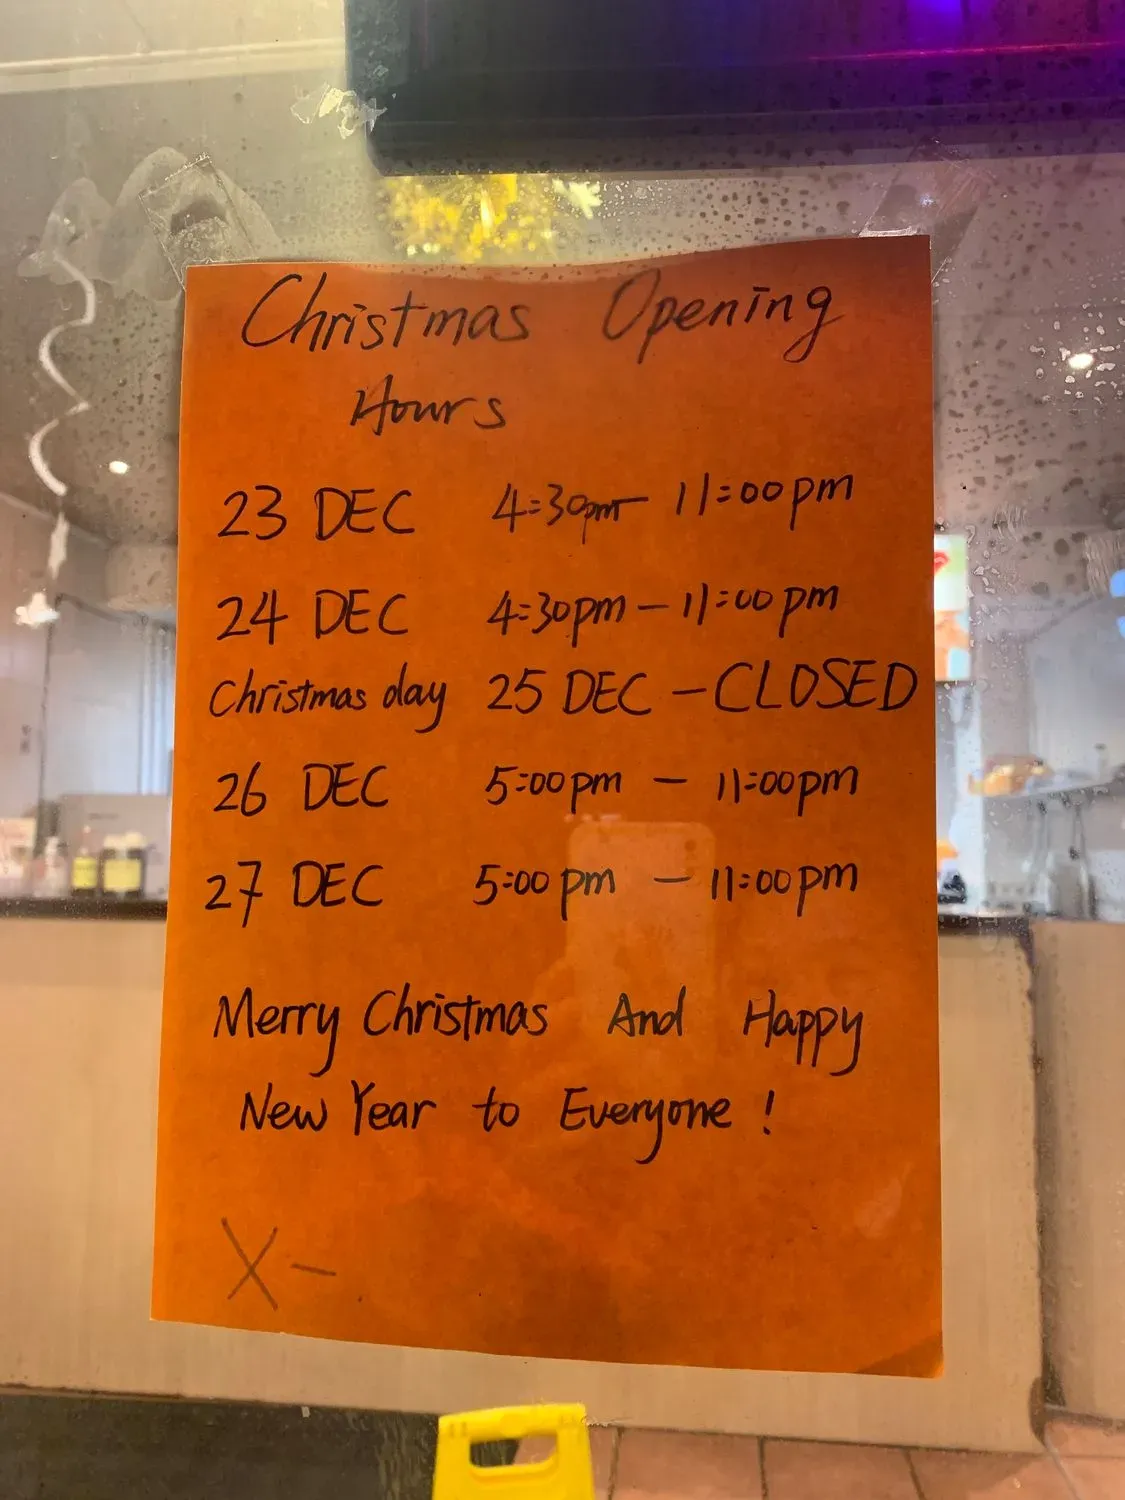 Christmas Opening
Hours
23 DEC 4:30pm - 11:00pm
24 DEC 4:30pm - 11:00pm
Christmas day 25 DEC - CLOSED
26 DEC 5:00pm - 11:00pm
27 DEC 5:00pm - 11:00pm
Merry Christmas And Happy
New Year to Everyone!
X-